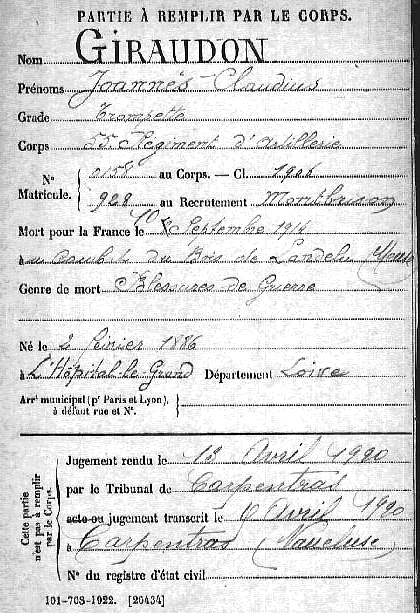 PARTIE À REMPLIR PAR LE CORPS.
Nom GIRAUDON
Prénoms Joannès Claudius
Grade Trompette
Corps 55e Régiment d'Artillerie
N° Matricule. { 0158 au Corps. — Cl. 1906
928 au Recrutement Montbrison
Mort pour la France le 10 Septembre 1914
à au combat du Bois de Landelu (Meuse
Genre de mort Blessures de Guerre
Né le 2 février 1886
à L'Hôpital-le-Grand Département Loire
Arrt municipal (pr Paris et Lyon), à défaut rue et N°. {
Cette partie n'est pas à remplir par le Corps.
Jugement rendu le Avril 1920
par le Tribunal de Carpentras
acte ou jugement transcrit le Avril 1920
à Carpentras (Vaucluse)
N° du registre d'état civil
101-708-1922. [26434]